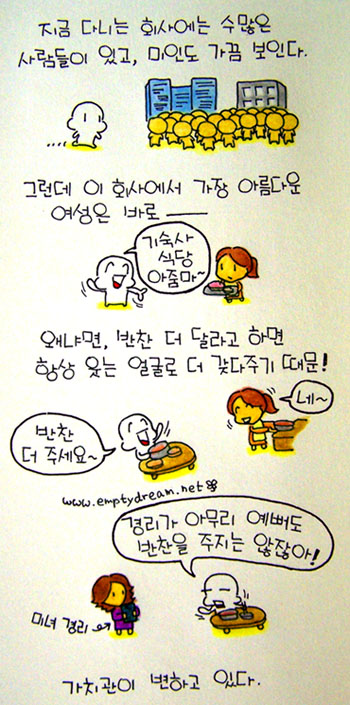 지금 다니는 회사에는 수많은
사람들이 있고, 미인도 가끔 보인다.
그런데 이 회사에서 가장 아름다운
여성은 바로 ───
기숙사
식당
아줌마~
왜냐면, 반찬 더 달라고 하면
항상 웃는 얼굴로 더 갖다주기 때문!
네~
반찬
더 주세요~
www.emptydream.net
경리가 아무리 예뻐도
반찬을 주지는 않잖아!
미녀 경리→
가치관이 변하고 있다.